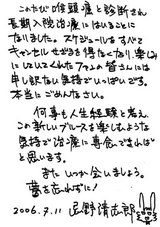 このたび喉頭癌と診断され
長期入院治療に はいることに
なりました。スケジュールをすべて
キャンセルせざるを得なくなり、楽しみ
にしててくれたファンの皆さんには
申し訳ない気持でいっぱいです。
本当にごめんなさい。
何事も人生経験と考え、
この新しいブルースを楽しむような
気持で治療に専念できればと
思います。
また いつか 会いましょう。
夢を忘れずに！
2006.7.11 忌野清志郎